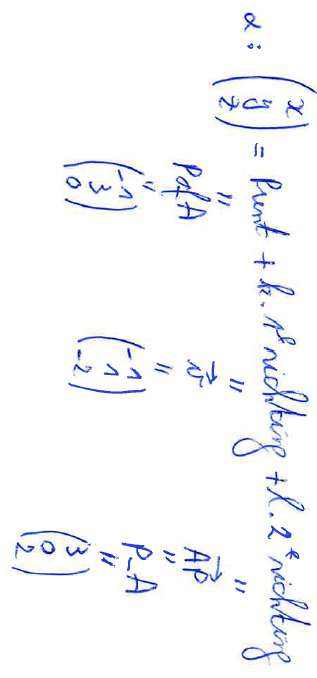 α : (x y z) = Punt + k. 1e richting + l. 2e richting
" " "
P of A v⃗ AP⃗
" " "
(-1 3 0) (-1 1 -2) P-A
"
(3 0 2)